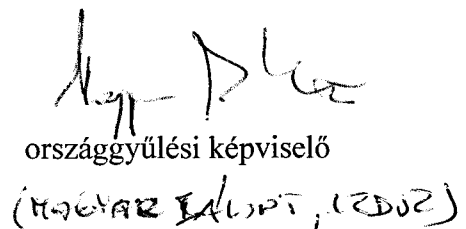 országgyűlési képviselő
(MAGYAR BÁLINT, SZDSZ)